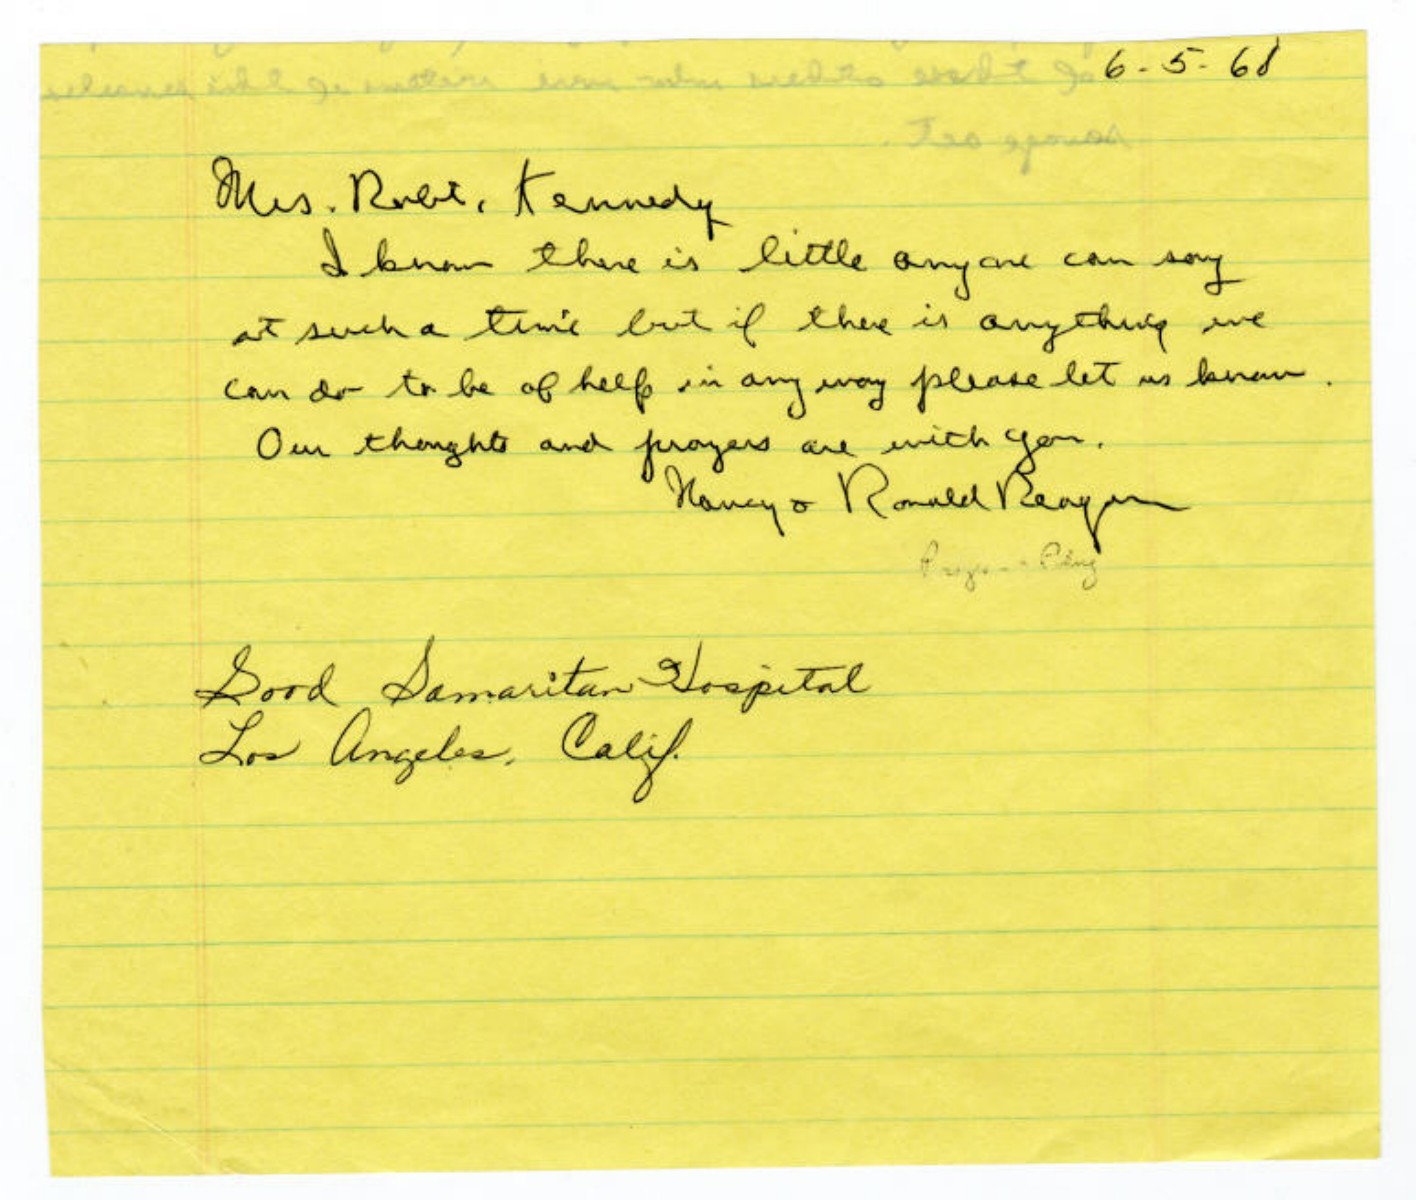 6-5-68
Mrs. Robt. Kennedy
I know there is little anyone can say
at such a time but if there is anything we
can do to be of help in any way please let us know.
Our thoughts and prayers are with you.
Nancy & Ronald Reagan
Good Samaritan Hospital
Los Angeles, Calif.